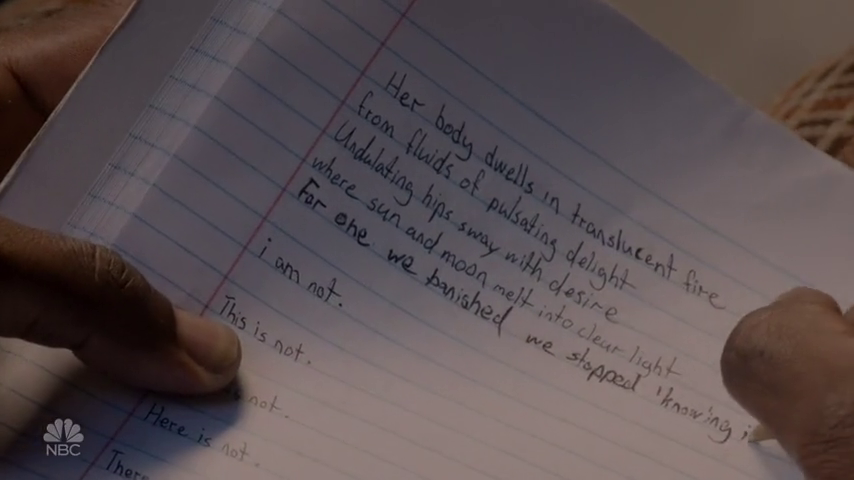 Her body dwells in translucent fire
from fluids of pulsating delight
Undulating hips sway with desire
where sun and moon melt into clear light
For one we banished we stopped 'knowing i
i am not.
This is not.
s not.
Here is not.
There
NBC